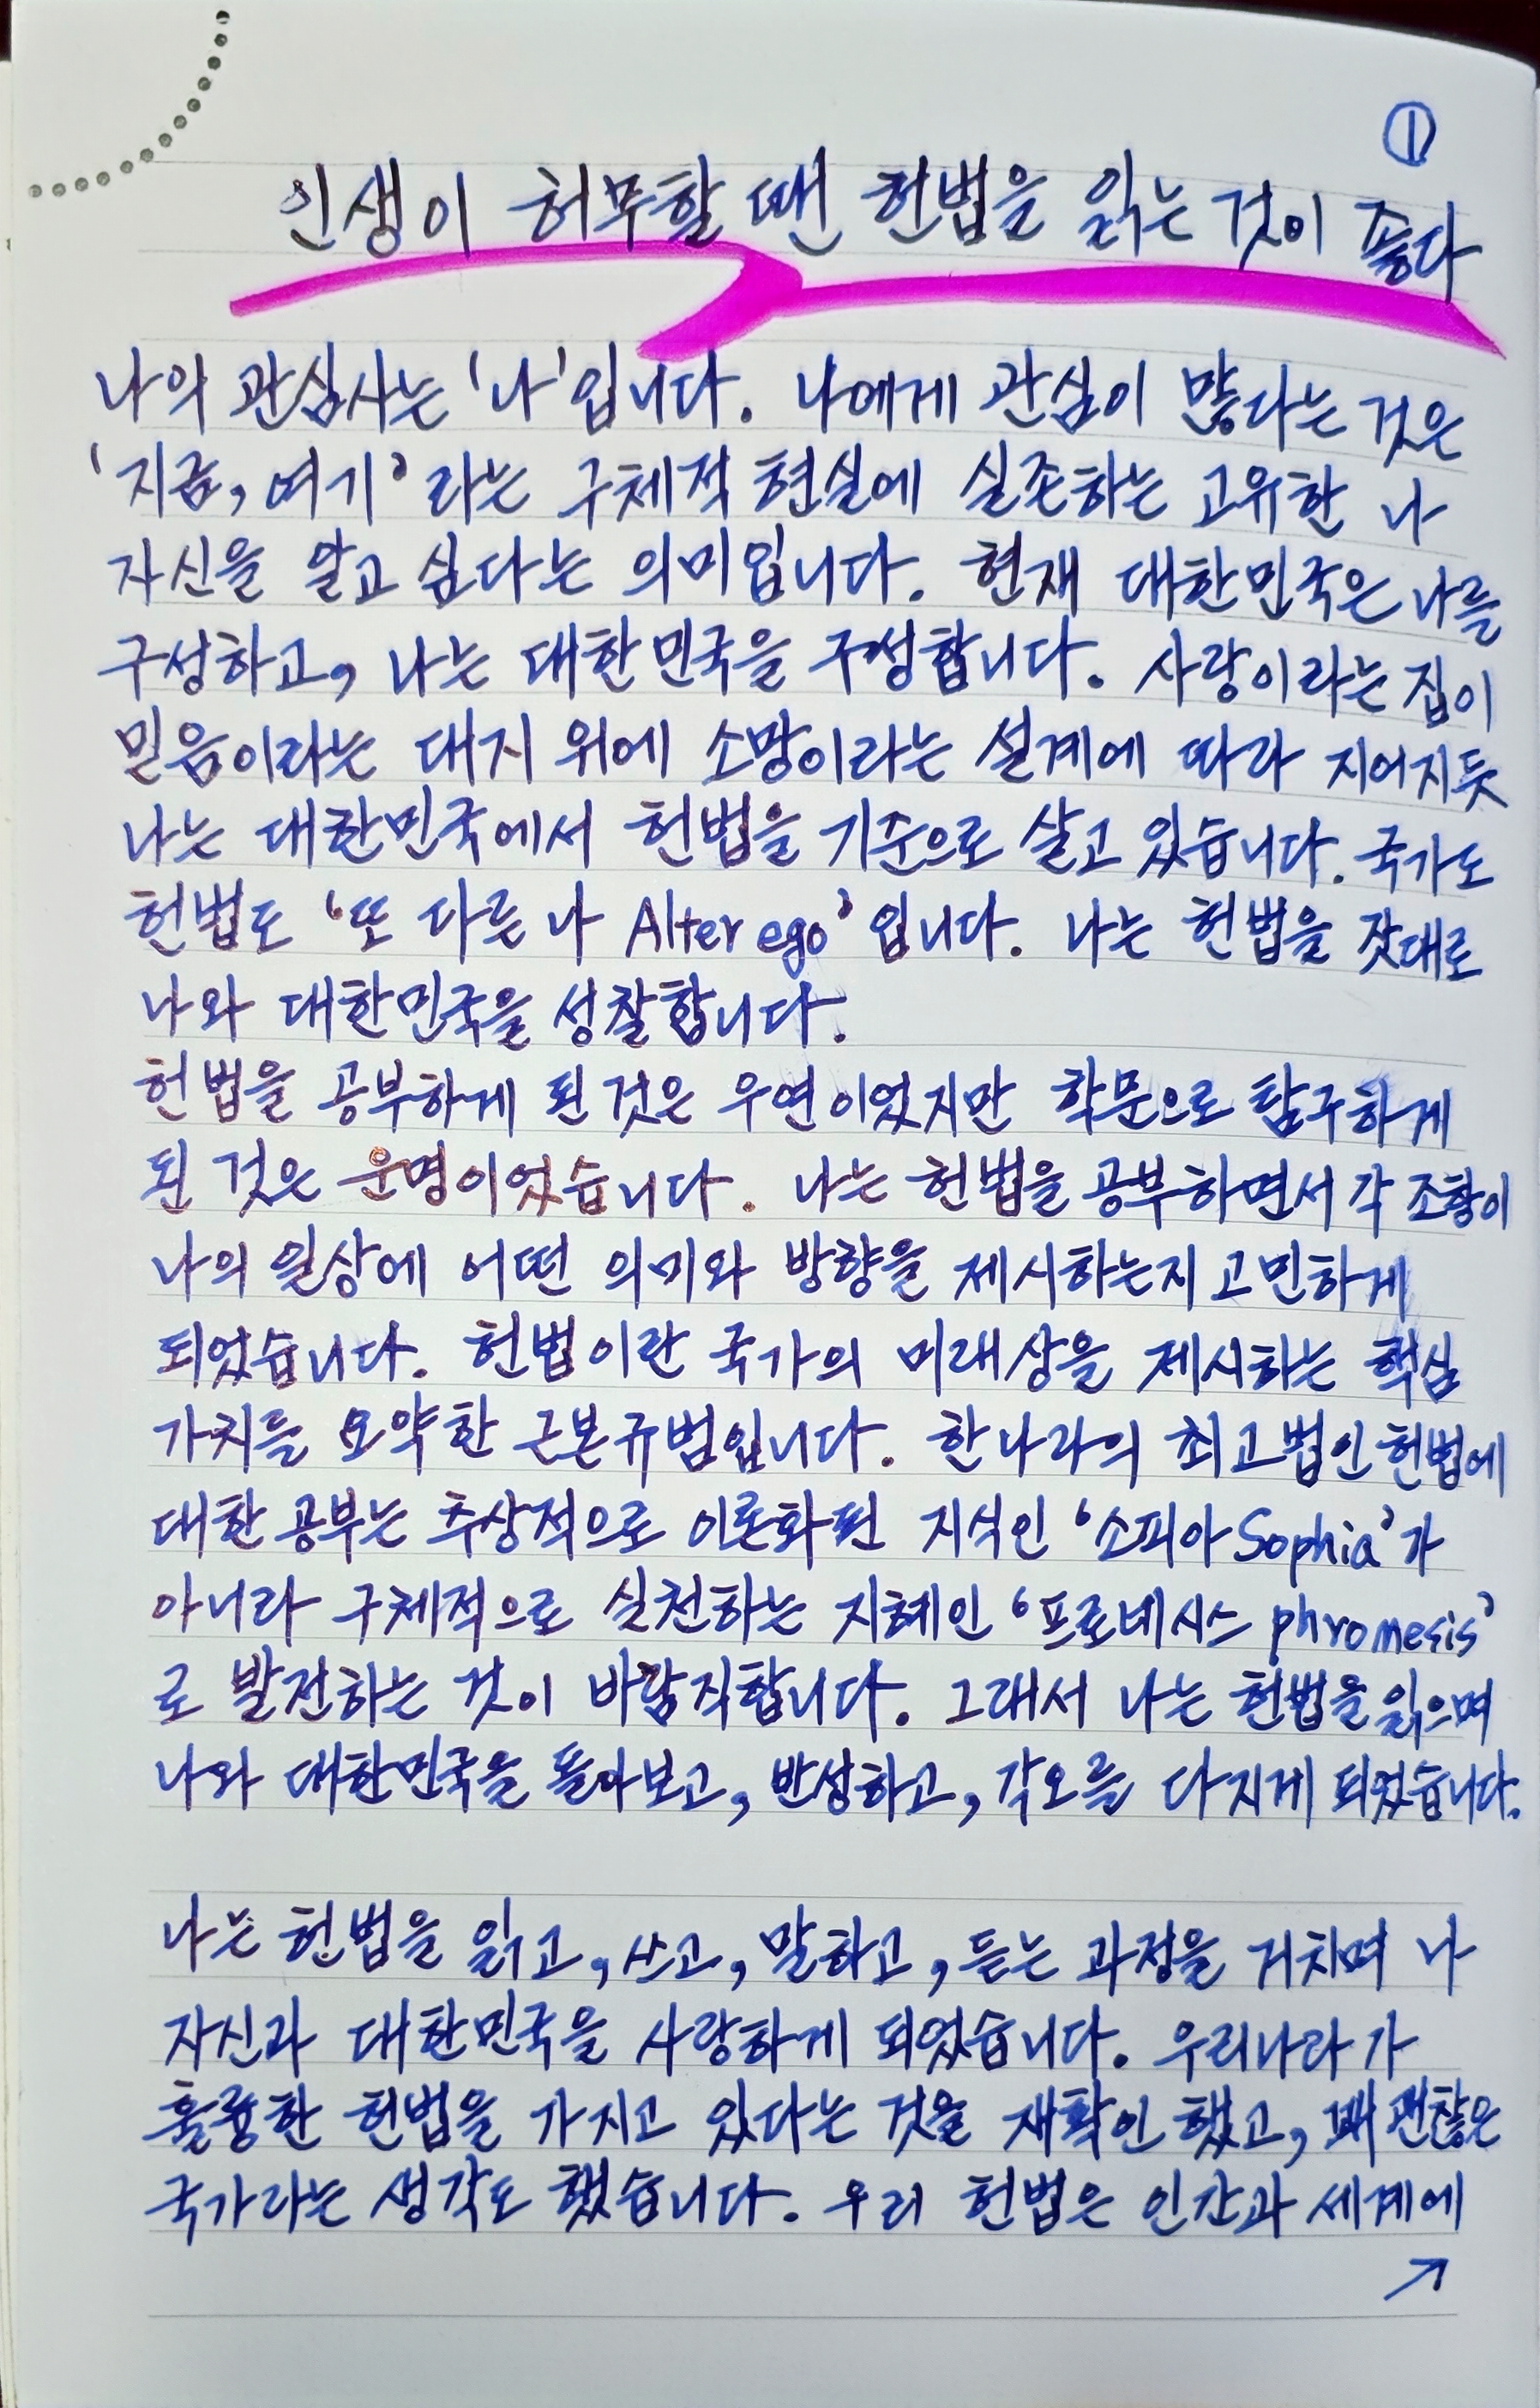 ①
인생이 허무할 땐 헌법을 읽는 것이 좋다
나의 관심사는 '나'입니다. 나에게 관심이 많다는 것은
'지금, 여기' 라는 구체적 현실에 실존하는 고유한 나
자신을 알고 싶다는 의미입니다. 현재 대한민국은 나를
구성하고, 나는 대한민국을 구성합니다. 사랑이라는 집이
믿음이라는 대지 위에 소망이라는 설계에 따라 지어지듯
나는 대한민국에서 헌법을 기준으로 살고 있습니다. 국가도
헌법도 '또 다른 나 Alter ego' 입니다. 나는 헌법을 잣대로
나와 대한민국을 성찰합니다.
헌법을 공부하게 된 것은 우연이었지만 학문으로 탐구하게
된 것은 운명이었습니다. 나는 헌법을 공부하면서 각 조항이
나의 일상에 어떤 의미와 방향을 제시하는지 고민하게
되었습니다. 헌법이란 국가의 미래상을 제시하는 핵심
가치를 요약한 근본규범입니다. 한 나라의 최고법인 헌법에
대한 공부는 추상적으로 이론화된 지식인 '소피아 Sophia'가
아니라 구체적으로 실천하는 지혜인 '프로네시스 phromesis'
로 발전하는 것이 바람직합니다. 그래서 나는 헌법을 읽으며
나와 대한민국을 돌아보고, 반성하고, 각오를 다지게 되었습니다.
나는 헌법을 읽고, 쓰고, 말하고, 듣는 과정을 거치며 나
자신과 대한민국을 사랑하게 되었습니다. 우리나라가
훌륭한 헌법을 가지고 있다는 것을 재확인 했고, 꽤 괜찮은
국가라는 생각도 했습니다. 우리 헌법은 인간과 세계에
↗